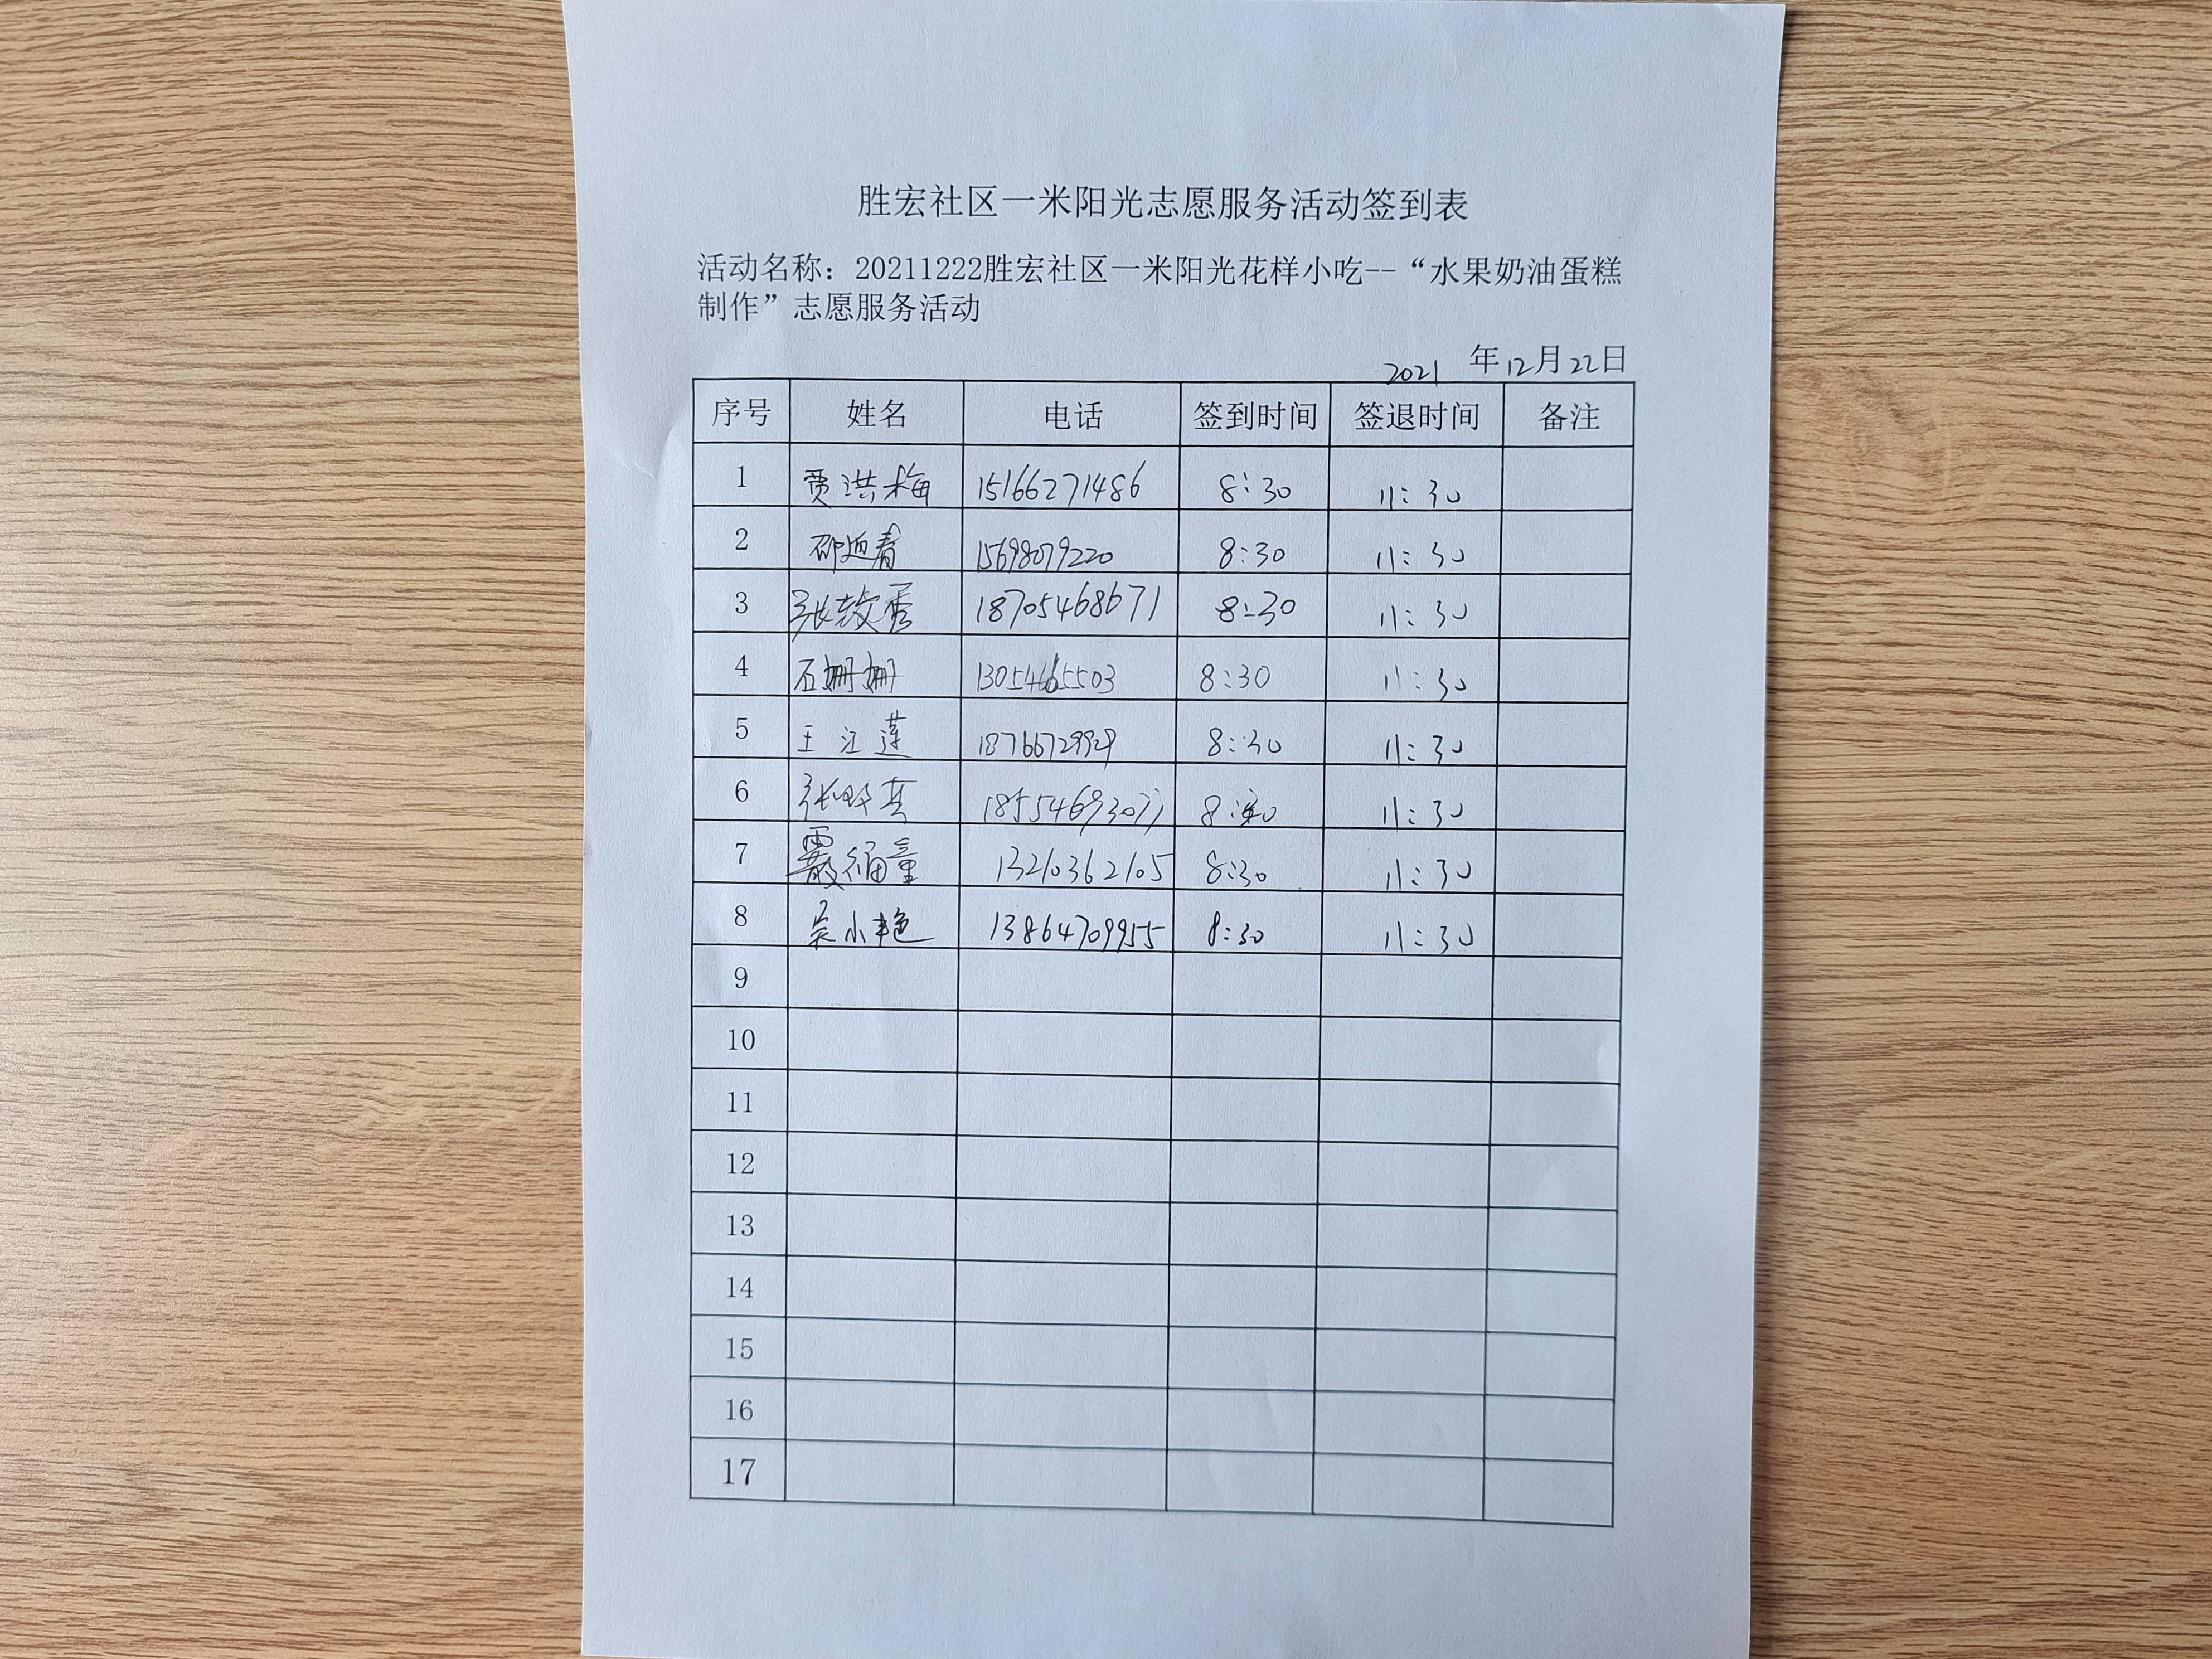 胜宏社区一米阳光志愿服务活动签到表
活动名称：20211222胜宏社区一米阳光花样小吃--“水果奶油蛋糕
制作”志愿服务活动
2021 年12月22日
序号 姓名 电话 签到时间 签退时间 备注
1 贾洪梅 15166271486 8:30 11:30
2 邵迎春 15698079220 8:30 11:30
3 张效香 18705468671 8:30 11:30
4 石姗姗 13054665503 8:30 11:30
5 王江莲 18766729929 8:30 11:30
6 8:30 11:30
7 13210362105 8:30 11:30
8 吴小艳 13864709955 8:30 11:30
9
10
11
12
13
14
15
16
17